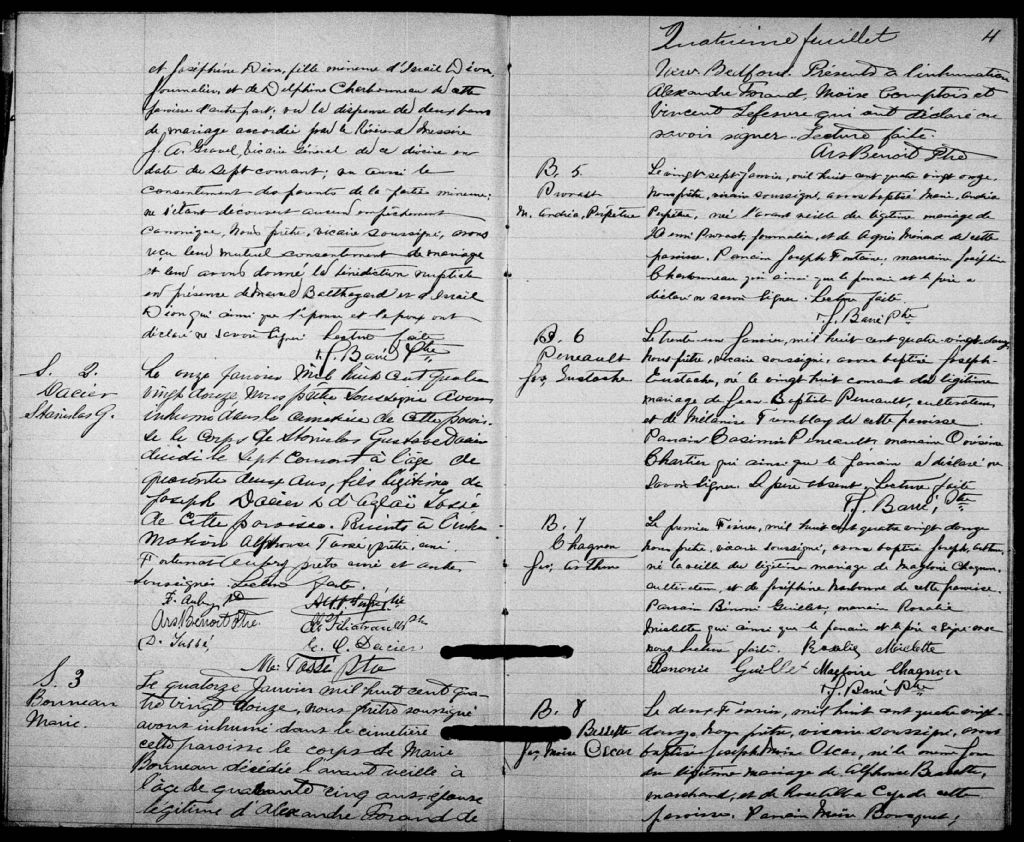 et Joséphine Dion, fille mineure d'Israël Dion,
Journalier, et de Delphine Charbonneau de cette
paroisse d'autre part; vu la dispense de deux bans
de mariage accordée par le Révérend Messire
J. A. Gravel, Vicaire Général de ce diocèse en
date du sept courant; vu aussi le
consentement des parents de la partie mineure;
ne s'étant découvert aucun empêchement
canonique, Nous prêtre, vicaire soussigné, avons
reçu leur mutuel consentement de mariage
et leur avons donné la bénédiction nuptiale
en présence de Balthazard et d'Israël
Dion qui ainsi que l'épouse et l'époux ont
déclaré ne savoir signer Lecture faite
J. Barré Ptre
S. 2.
Dacier
Stanislas G.
Le onze Janvier Mil huit cent quatre
vingt douze Nous prêtre soussigné avons
inhumé dans le cimetière de cette parois-
se le corps de Stanislas Gustave Dacier
décédé le sept courant à l'âge de
quarante deux ans, fils légitime de
Joseph Dacier & d'Aglaï Tassé
de cette paroisse. Présents à l'inhu
mation Alphonse Tassé, prêtre, curé.
Fortunat Aubry prêtre curé et autres
soussignés. Lecture faite.
F. Aubry, Ptre
Ars Benoit Ptre
Filiatrault Ptre
D. Tassé
C. Dacier
Tassé Ptre
S. 3
Bonneau
Marie.
Le quatorze Janvier mil huit cent qua-
tre vingt douze, nous prêtre soussigné
avons inhumé dans le cimetière de
cette paroisse le corps de Marie
Bonneau décédée l'avant veille à
l'âge de quarante cinq ans, épouse
légitime d'Alexandre Forand de
Quatrième feuillet
4
New Bedford. Présents à l'inhumation
Alexandre Forand, Moïse Comptois et
Vincent Lefebvre qui ont déclaré ne
savoir signer. Lecture faite.
Ars Benoit Ptre
B. 5
Provost
M. Andréa, Perpétue
Le vingt sept Janvier, mil huit cent quatre vingt onze,
nous prêtre, vicaire soussigné, avons baptisé Marie, Andréa
Perpétue, née l'avant veille du légitime mariage de
Henri Provost, journalier, et de Agnès Ménard de cette
paroisse. Parrain Joseph Fontaine, marraine Joséphine
Charbonneau qui ainsi que le parrain et le père a
déclaré ne savoir signer. Lecture faite
J. Barré Ptre
B. 6
Perreault
Jos, Eustache
Le trente un Janvier, mil huit cent quatre vingt, douze
Nous prêtre, vicaire soussigné, avons baptisé Joseph-
Eustache, né le vingt huit courant du légitime
mariage de Jean Baptiste Perreault, cultivateur,
et de Mélanise Tremblay de cette paroisse.
Parrain Casimir Perreault, marraine
Chartier qui ainsi que le parrain a déclaré ne
savoir signer. Le père absent. Lecture faite
J. Barré, Ptre
B. 7
Chagnon
Jos, Arthur
Le premier Février, mil huit cent quatre vingt douze
nous prêtre, vicaire soussigné, avons baptisé Joseph, Arthur,
né la veille du légitime mariage de Magloire Chagnon,
cultivateur, et de Joséphine Narbonne de cette paroisse.
Parrain Bénoni Guillet, marraine Rosalie
Miclette qui ainsi que le parrain et le père a signé avec
nous Lecture faite. Rosalie Miclette
Benonie Guillet Magloire Chagnon
J. Barré Ptre
B. 8
Bessette
Jos, Moïse Oscar
Le deux Février, mil huit cent quatre vingt-
douze, Nous prêtre, vicaire soussigné, avons
baptisé Joseph Moïse Oscar, né le même jour
du légitime mariage de Alphonse Bessette,
marchand, et de Rosetilda Cyr de cette
paroisse. Parrain Moïse Bousquet;